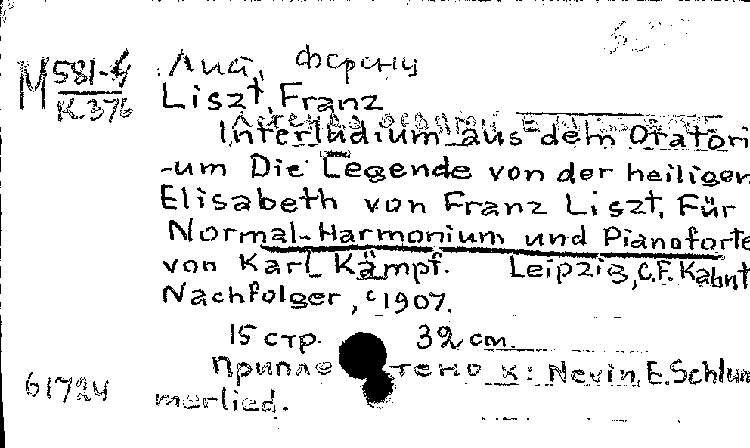 М 581-4
К 376
Лист, Ференц
Liszt, Franz
Interludium aus dem Oratori
-um Die Legende von der heiligen
Elisabeth von Franz Liszt. Für
Normal-Harmonium und Pianoforte
von Karl Kämpf. Leipzig, C.F. Kahnt
Nachfolger, c1907.
15 стр. 32 см.
Приплетено к: Nevin, E. Schlum
merlied.
61724